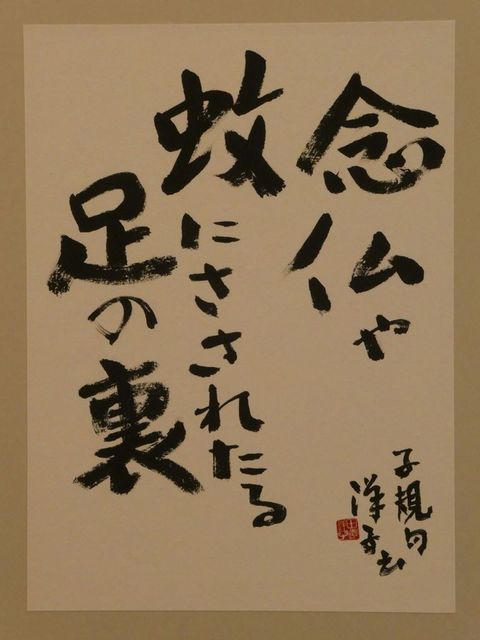 念仏や
蚊にさされたる
足の裏
子規句
洋子書